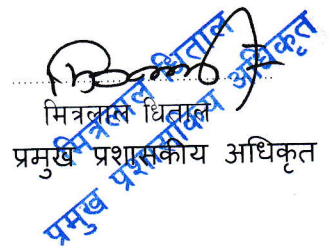 मित्रलाल धिताल
प्रमुख प्रशासकीय अधिकृत
मित्रलाल धिताल
प्रमुख प्रशासकीय अधिकृत